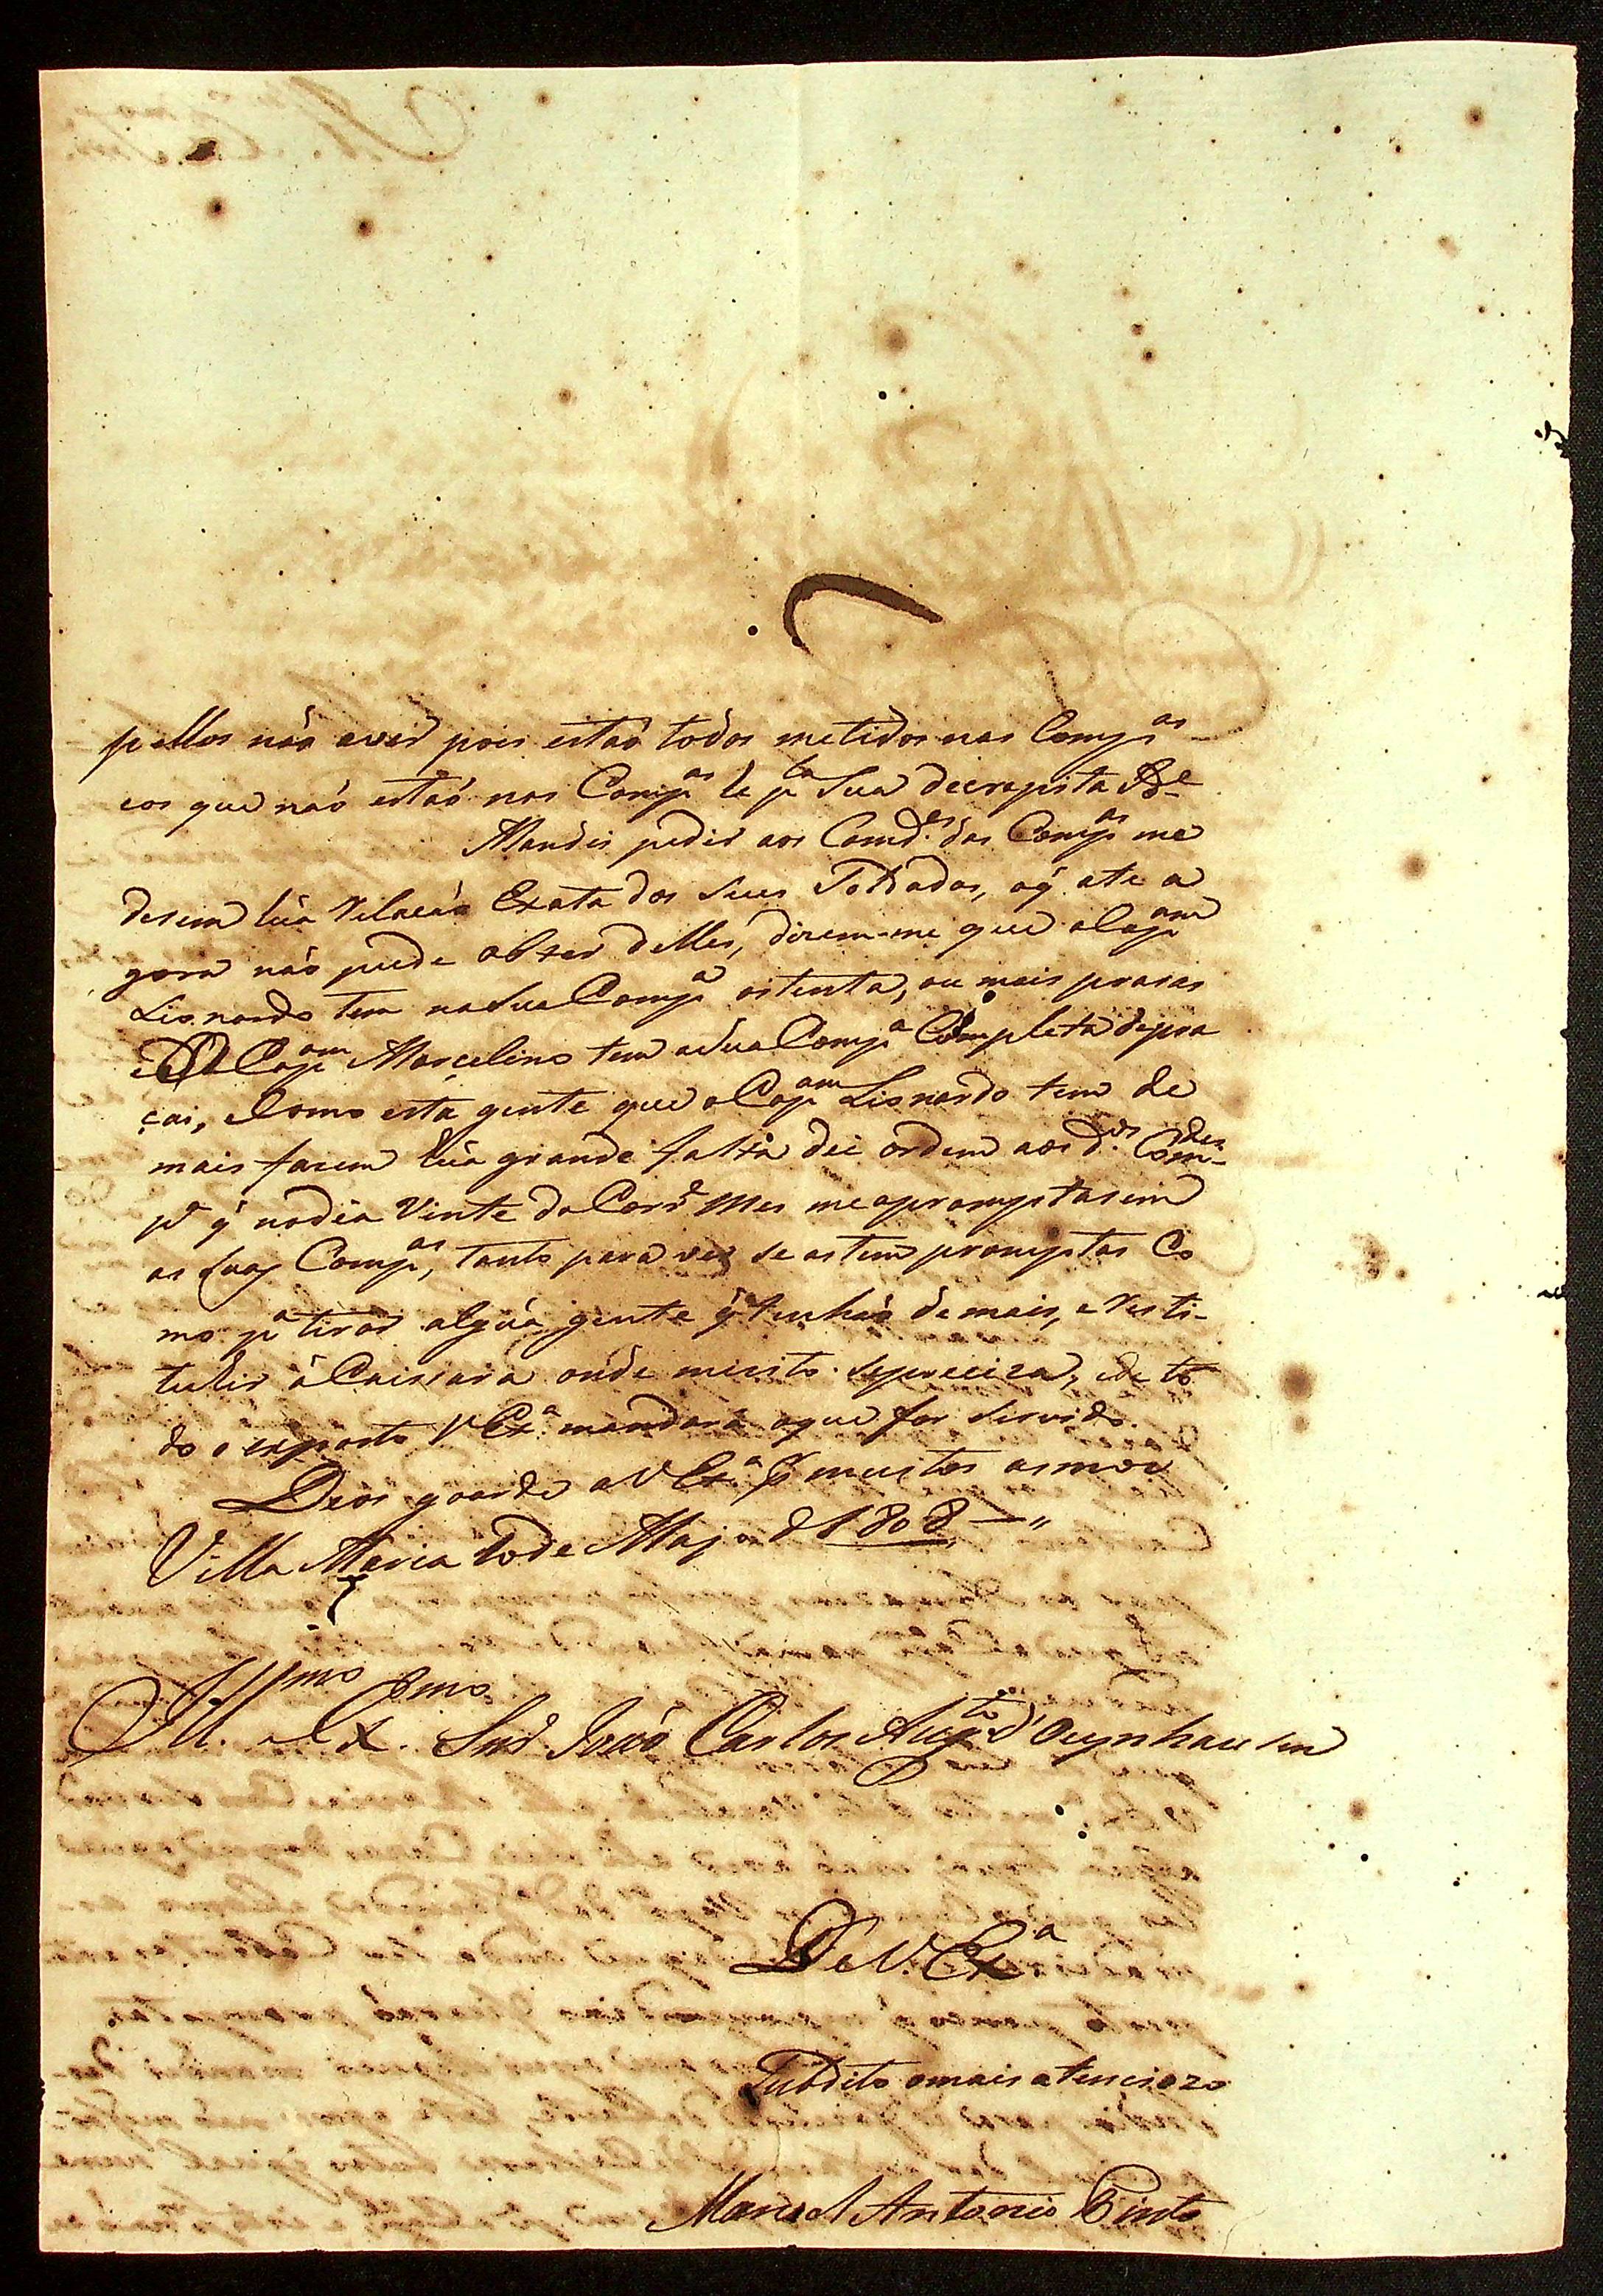 pellos não aver pois estaõ todos metidos nas Comp.as
eos que naõ estaõ nas Comp.as he p.la Sua decrepita Id.e
Mandei pedir aos Com.des das Comp.as me
desem hũa Relacaõ Exata dos Seus Soldados, oq̃ ate a
gora não pude obter delles, dizem-me que o Cap.am
Lionardo tem na sua Comp.a oitenta, ou mais prasas
e O Cap.am Marcelino tem a sua Comp.a Completa de pra
ças, e Como esta gente que o Cap.am Lionardo tem de
mais fazem hũa grande falta dei ordem aos d.os Com.des
p.a q̃ no dia Vinte do Corr.e Mes me apromptasem
as suas Comp.as, tanto para ver se as tem promptas Co
mo p.a tirar algũa gente q̃ tenhaõ de mais, e Resti-
tuhir á Caissara onde muito se preciza, e de to
do o exposto V Ex.a mandará o que for servido.
Deos goarde a V Ex.a p.r muitos annos
Villa Maria 10 de Majo d 1808
Ill.mo e Ex.mo Sn.r Joaõ Carlos Aug.to d' Oeynhausen
De V. Ex.a
Subdito o mais atenciozo
Manoel Antonio Pinto